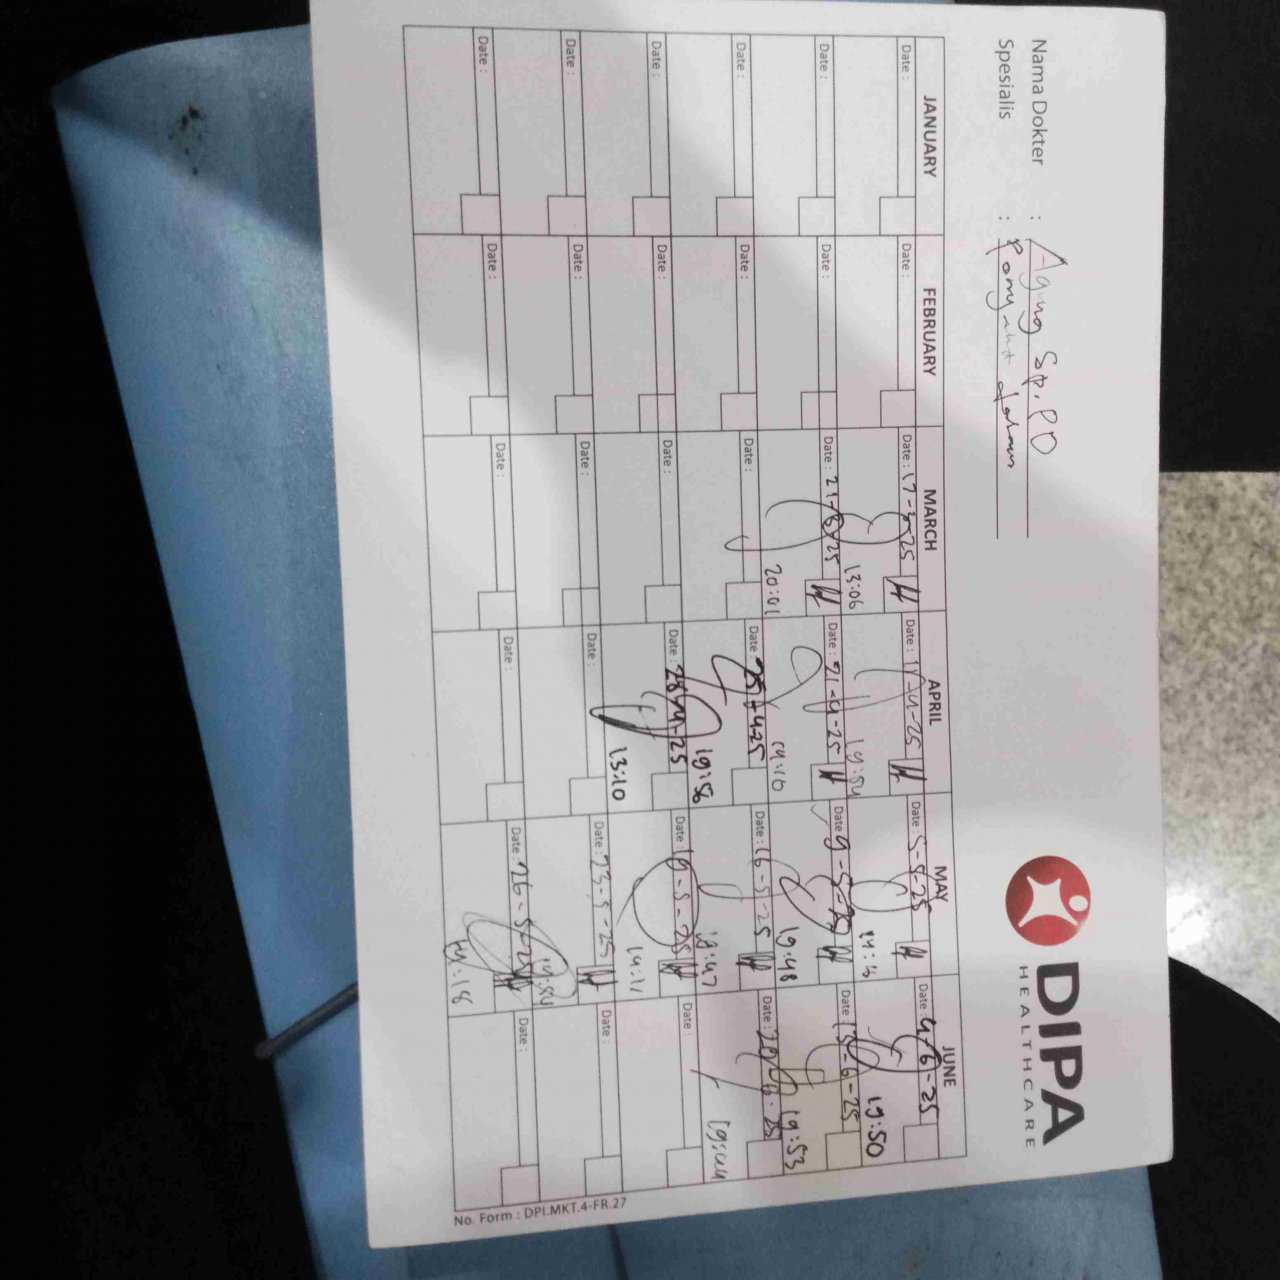 DIPA
HEALTHCARE
Nama Dokter : Agung Sp.PD
Spesialis : Penyakit dalam
JANUARY FEBRUARY MARCH APRIL MAY JUNE
Date : Date : Date : 17-3-25 Date : 17-4-25 Date : 5-5-25 Date : 4-6-25
13:06 19:54 14:13 19:50
Date : Date : Date : 21-3-25 Date : 21-4-25 Date : 9-5-25 Date : 13-6-25
20:01 14:16 19:48 19:53
Date : Date : Date : Date : 25-4-25 Date : 16-5-25 Date : 20-6-25
19:56 19:47 19:44
Date : Date : Date : Date : 28-4-25 Date : 19-5-25 Date :
13:10 14:11
Date : Date : Date : Date : Date : 23-5-25 Date :
19:54
Date : Date : Date : Date : Date : 26-5-25 Date :
14:18
No. Form : DPI.MKT.4-FR.27